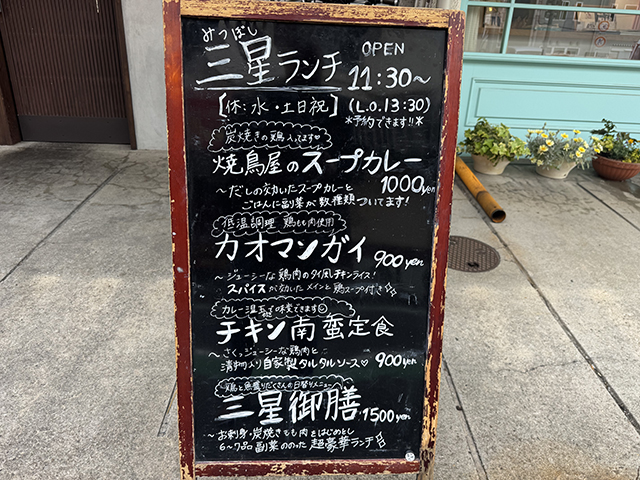 みつぼし
三星ランチ
OPEN
11:30～
【休:水・土日祝】
(L.O.13:30)
*予約できます!!*
炭焼きの鶏入ってます♡
焼鳥屋のスープカレー
1000yen
～だしの効いたスープカレーと
ごはんに副菜が数種類ついてます!
低温調理 鶏もも肉使用
カオマンガイ
900yen
～ジューシーな鶏肉のタイ風チキンライス!
スパイスが効いたメインと鶏スープ付き
カレー塩 味変できます
チキン南蛮定食
～さくっジューシーな鶏肉と
清明入り自家製タルタルソース♡
900yen
鶏と魚盛りだくさんの日替りメニュー
三星御膳
1500yen
～お刺身・炭焼きもも肉をはじめとし
6～7品副菜ののった超豪華ランチ